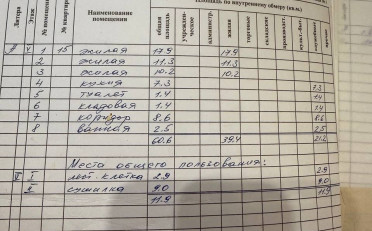 Площадь по внутреннему обмеру (кв.м)
Литера Этаж № помещения № квартиры Наименование помещения общая площадь жилая торговые складские
1 15 жилая 17.9 17.9
2 жилая 11.3 11.3
3 жилая 10.2 10.2
4 кухня 7.3 7.3
5 туалет 1.4 1.4
6 кладовая 1.4 1.4
7 коридор 8.6 8.6
8 ванная 2.5 2.5
60.6 39.4 21.2
Места общего пользования:
лест. клетка 2.9 2.9
сушилка 9.0 9.0
11.9 11.9